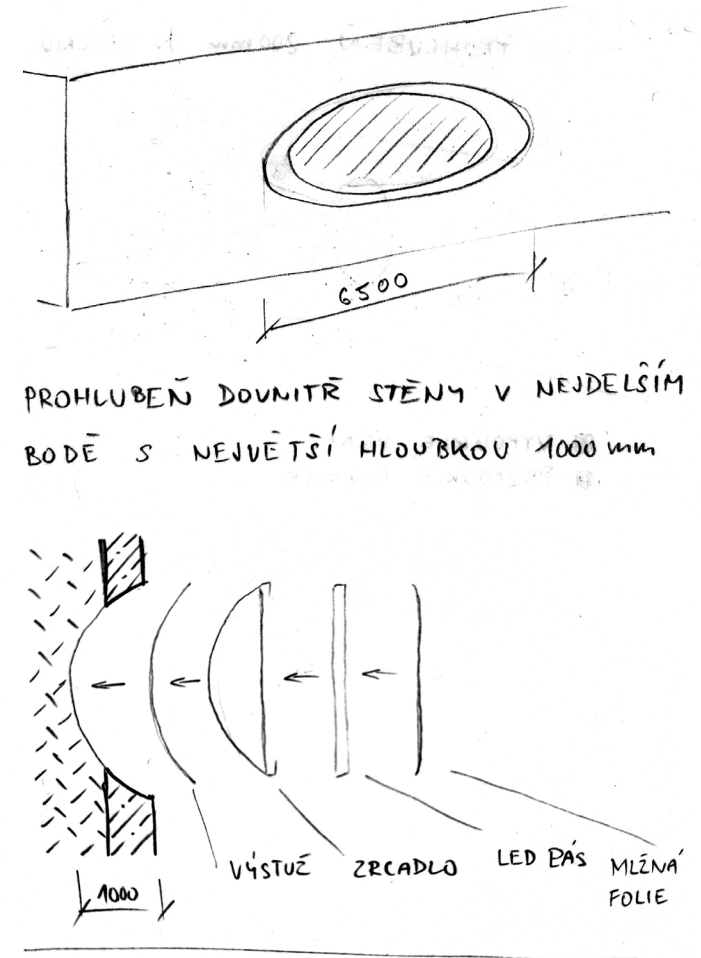 6500
PROHLUBEŇ DOVNITŘ STĚNY V NEJDELŠÍM
BODĚ S NEJVĚTŠÍ HLOUBKOU 1000 mm
VÝSTUŽ ZRCADLO LED PÁS MLŽNÁ
FOLIE
1000